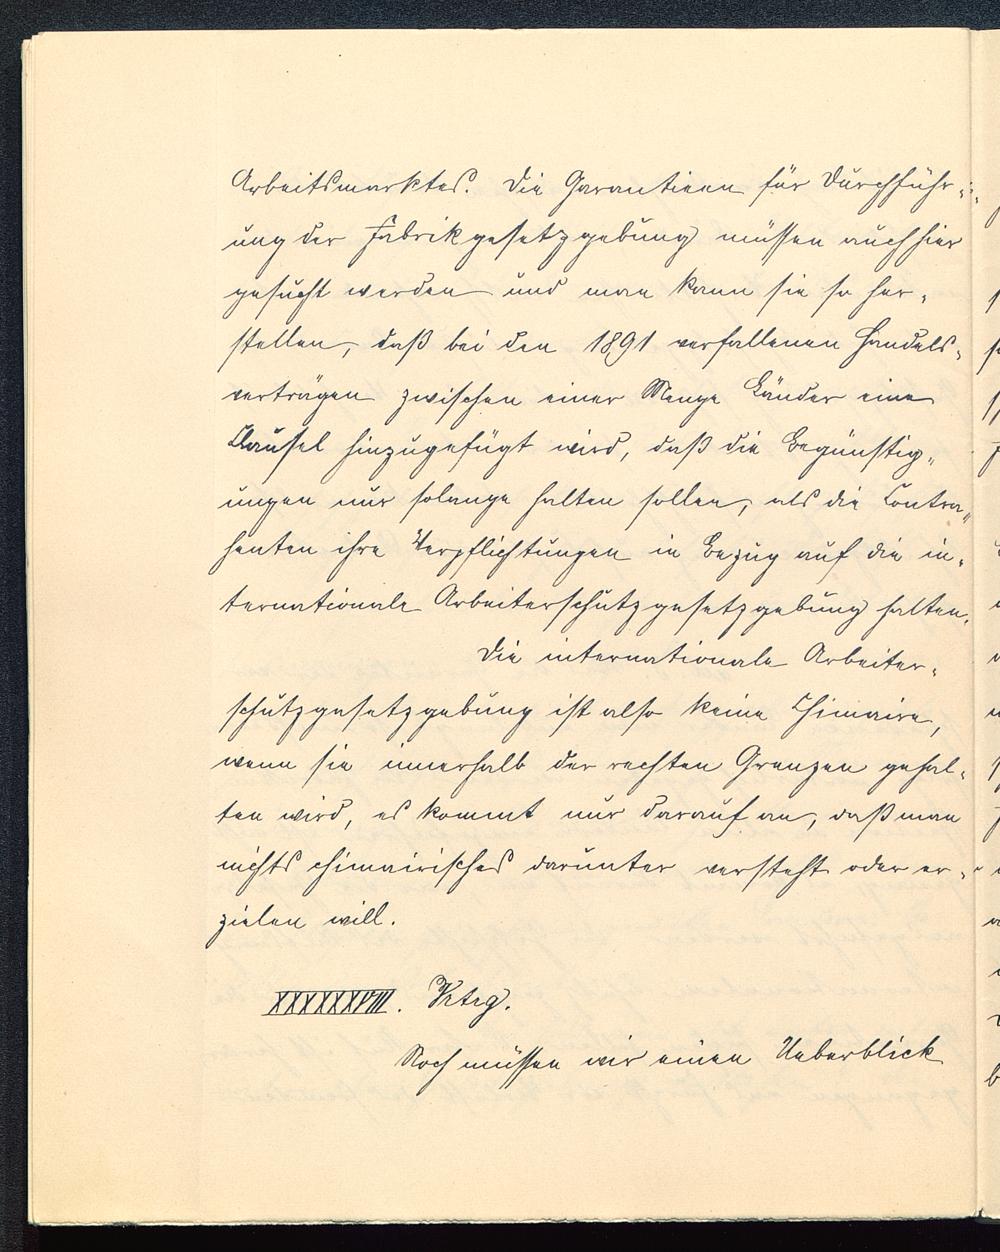 Arbeitsmarktes. Die Garantieen für Durchführ-
ung der Fabrikgesetzgebung müssen auch hier
gesucht werden und man kann sie so her-
stellen, daß bei den 1891 verfallenen Handels-
verträgen zwischen einer Menge Länder eine
Clausel hinzugefügt wird, daß die Begünstig-
ungen nur solange halten sollen, als die Contra-
henten ihre Verpflichtungen in Bezug auf die in-
ternationale Arbeiterschutzgesetzgebung halten.
Die internationale Arbeiter-
schutzgesetzgebung ist also keine Chimaire,
wenn sie innerhalb der rechten Grenzen gehal-
ten wird, es kommt nur darauf an, daß man
nichts chimairisches darunter versteht oder er-
zielen will.
XXXXXXVIII. Vtrg.
Noch müssen wir einen Ueberblick